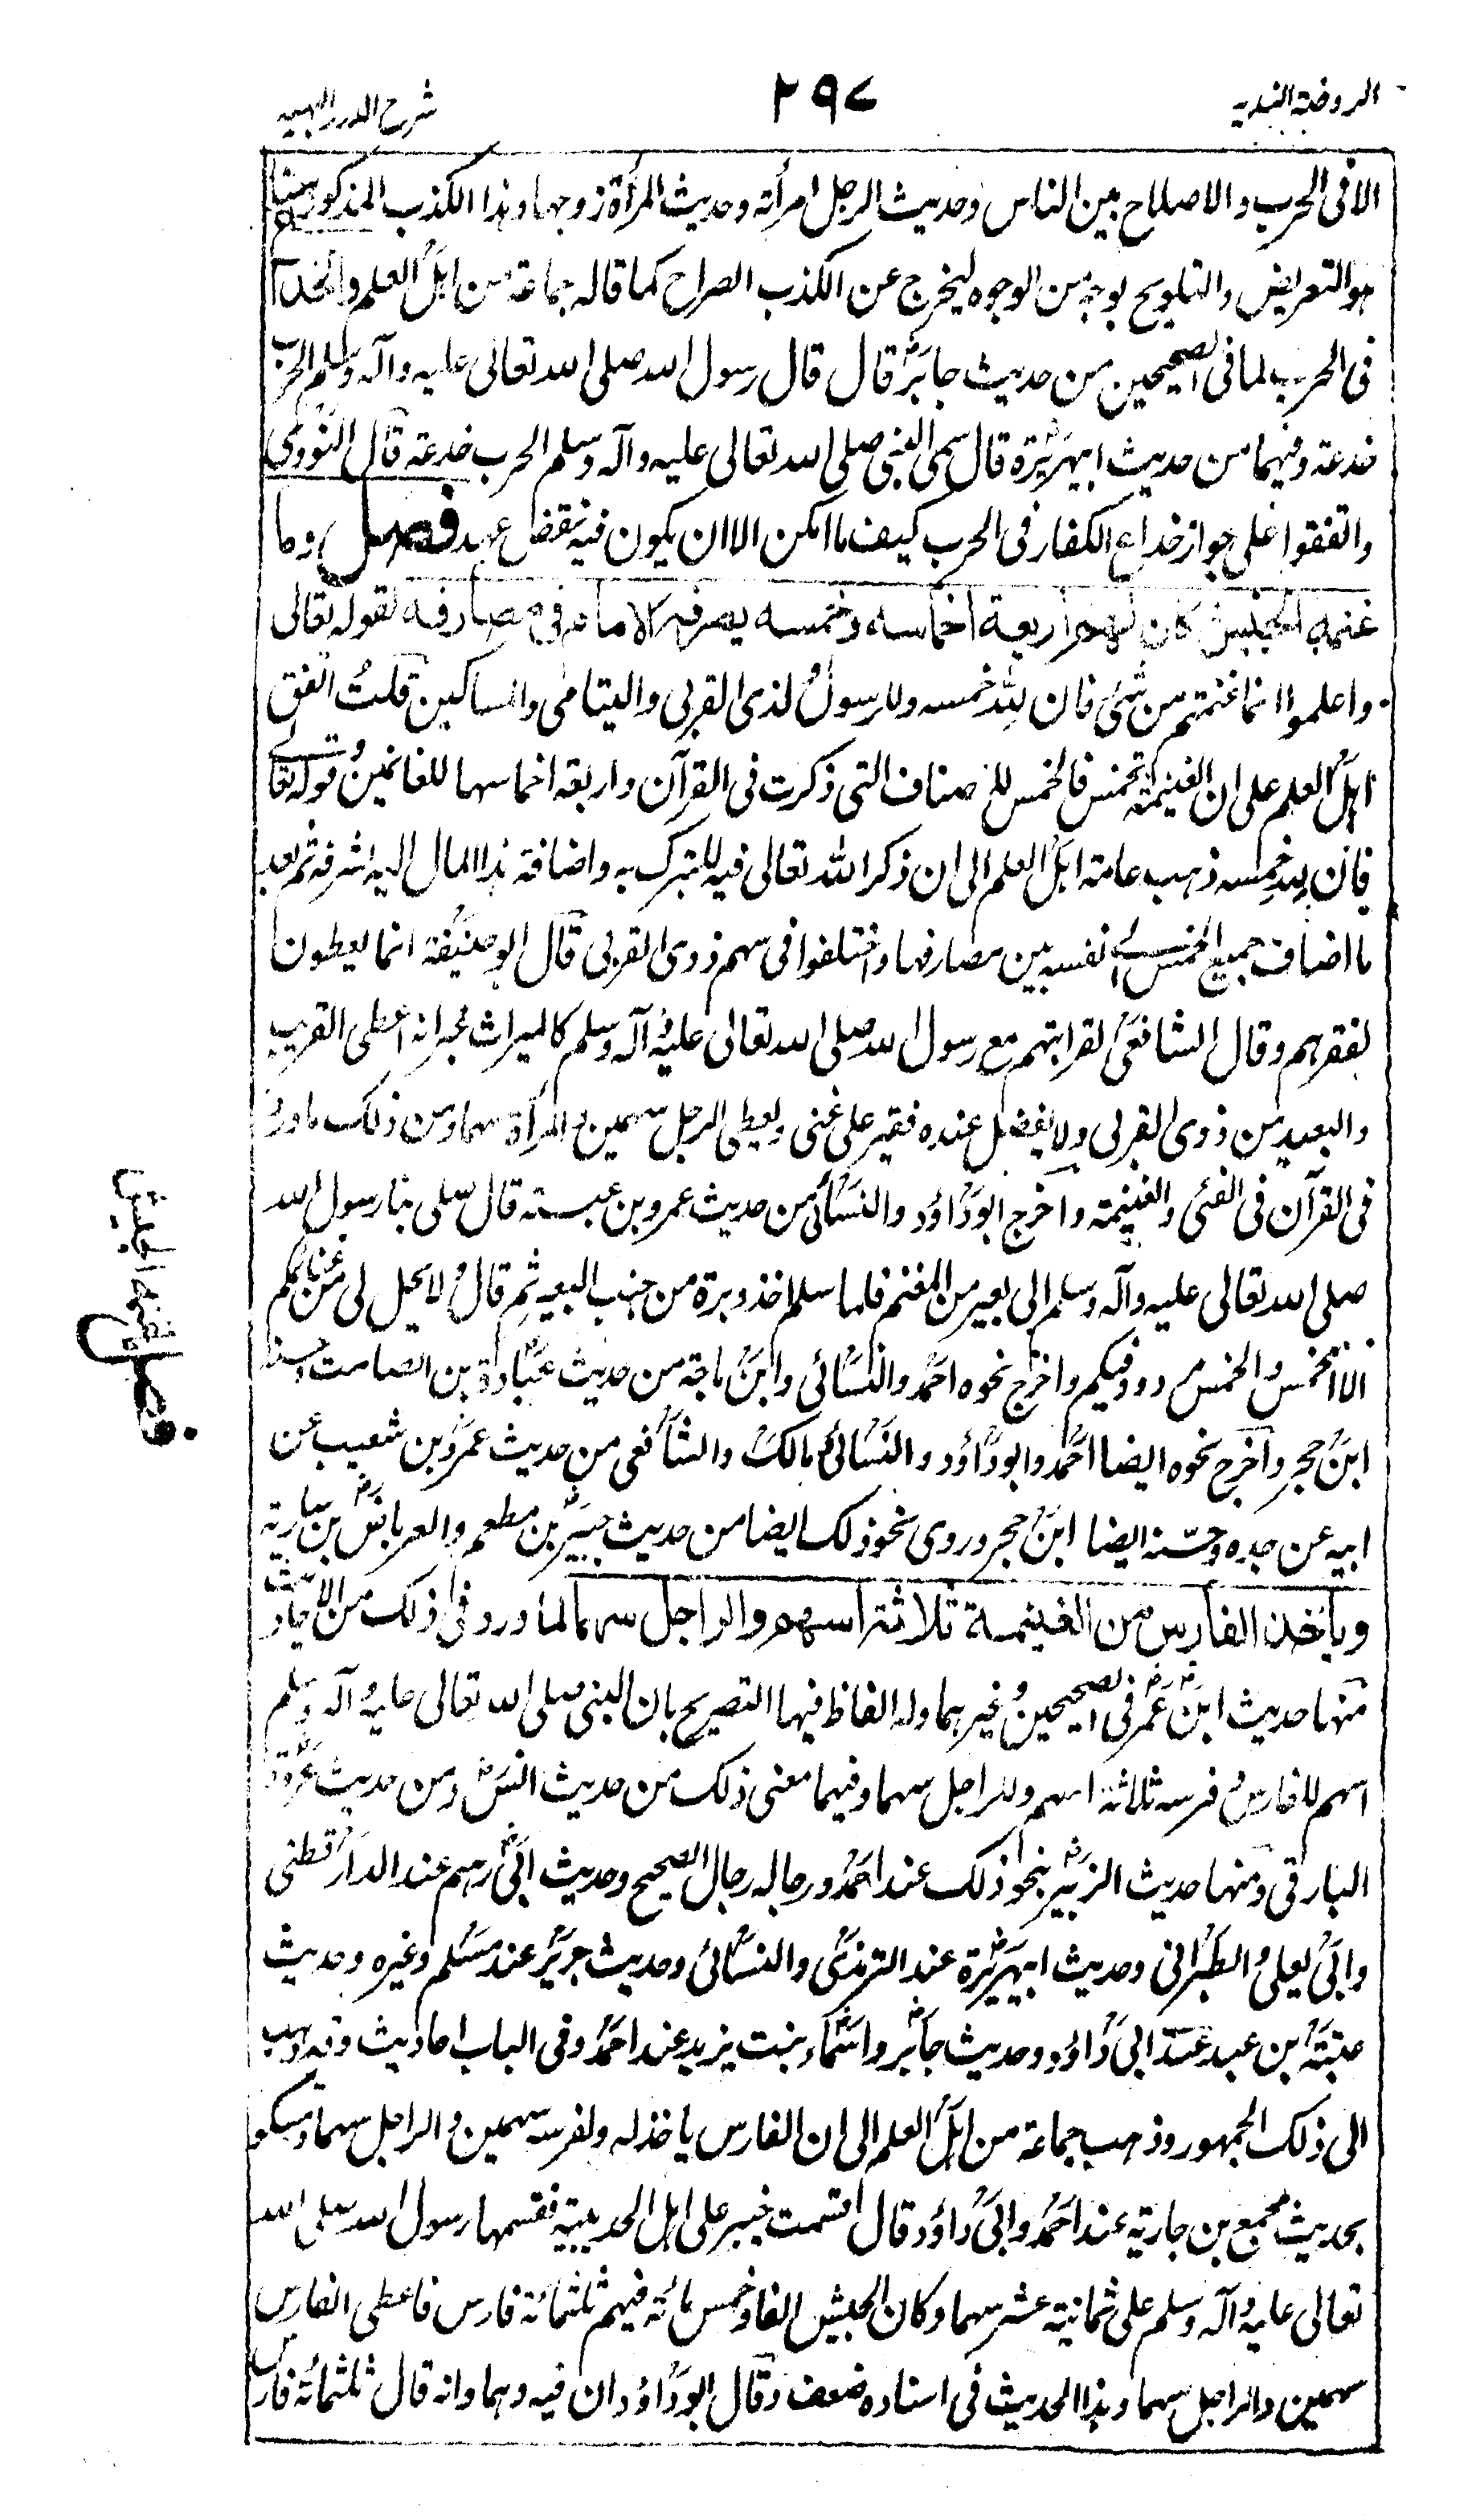 الروضة الندیه
٢٩٧
شرح الدرر البهیه
الا فى الحرب والاصلاح بين الناس وحديث الرجل امرأته وحديث المرأة زوجها وهذا الكذب المذكور هنا
هو التعريض والتلويح بوجه من الوجوه ليخرج عن الكذب الصراح كما قاله جماعة من اهل العلم والخداع
فى الحرب لما فى الصحيحين من حديث جابر قال قال رسول الله صلى الله تعالى عليه وآله وسلم الحرب
خدعة وفيهما من حديث ابيهريرة قال سمى النبى صلى الله تعالى عليه وآله وسلم الحرب خدعة قال النووى
واتفقوا على جواز خداع الكفار فى الحرب كيف ما امكن الا ان يكون فيه نقض عهد فصل وما
غنمه الجيش كان لهم اربعة اخماسه وخمسه يصرفه الامام فى مصارفه لقوله تعالى
واعلموا انما غنمتم من شئ فان لله خمسه وللرسول لذى القربى واليتامى والمساكين قلت اتفق
اهل العلم على ان الغنيمة تخمس فالخمس للاصناف التى ذكرت فى القرآن واربعة اخماسها للغانمين وقوله تعالى
فان لله خمسه ذهب عامة اهل العلم الى ان ذكر الله تعالى فيه للتبرك به واضافة هذا المال اليه لشرفه ثم بعد
ما اضاف جميع الخمس الى نفسه بين مصارفها واختلفوا فى سهم ذوى القربى قال ابو حنيفة انما يعطون
لفقرهم وقال الشافعى لقرابتهم مع رسول الله صلى الله تعالى عليه وآله وسلم كالميراث غير انه اعطى القريب
والبعيد من ذوى القربى ولا يفضل عنده فقير على غنى ويعطى الرجل سهمين والمرأة سهما ومن ذلك ما ورد
فى القرآن فى الفئ والغنيمة واخرج ابو داؤد والنسائى من حديث عمرو بن عبسة قال صلى بنا رسول الله
صلى الله تعالى عليه وآله وسلم الى بعير من المغنم فلما سلم اخذ وبرة من جنب البعير ثم قال ولا يحل لى من غنائمكم
الا الخمس والخمس مردود فيكم واخرج نحوه احمد والنسائى وابن ماجة من حديث عبادة بن الصامت وحسنه
ابن حجر واخرج نحوه ايضا احمد وابو داؤد والنسائى ومالك والشافعى من حديث عمرو بن شعيب عن
ابيه عن جده وحسنه ايضا ابن حجر وروى نحو ذلك ايضا من حديث جبير بن مطعم والعرباض بن سارية
وياخذ الفارس من الغنيمة ثلاثة اسهم والراجل سهما لما ورد فى ذلك من الاحاديث
منها حديث ابن عمر فى الصحيحين وغيرهما وله الفاظ فيها التصريح بان النبى صلى الله تعالى عليه وآله وسلم
اسهم للفارس وفرسه ثلاثة اسهم وللراجل سهما وفيهما معنى ذلك من حديث انس ومن حديث عروة
البارقى ومنها حديث الزبير بنحو ذلك عند احمد ورجاله رجال الصحيح وحديث ابى رهم عند الدارقطنى
وابى يعلى والطبرانى وحديث ابيهريرة عند الترمذى والنسائى وحديث جرير عند مسلم وغيره وحديث
عتبة ابن عبد عند ابى داؤد وحديث جابر واسماء بنت يزيد عند احمد وفى الباب احاديث وقد ذهب
الى ذلك الجمهور وذهب جماعة من اهل العلم الى ان الفارس ياخذ له ولفرسه سهمين والراجل سهما وتمسكوا
بحديث مجمع بن جارية عند احمد وابى داؤد قال قسمت خيبر على اهل الحديبية فقسمها رسول الله صلى الله
تعالى عليه وآله وسلم على ثمانية عشر سهما وكان الجيش الفا وخمس مائة فيهم ثلثمائة فارس فاعطى الفارس
سهمين والراجل سهما وهذا الحديث فى اسناده ضعف وقال ابو داؤد ان فيه وهما وانه قال ثلثمائة فارس
فصل ما غنمه الجيش